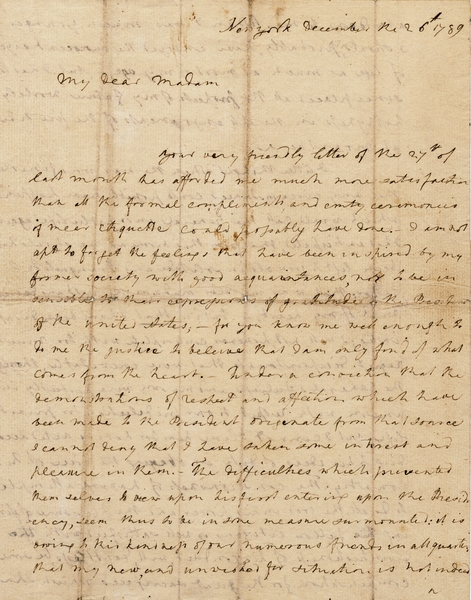 New york december the 26th 1789
My dear Madam
your very friendly letter of the 27th of
last month has afforded me much more satisfaction
than all the formal compliments and emty ceremonies
of meer etiquette could possably have done. - I am not
apt to forget the feelings that have been inspired by my
former society with good acquaintances, nor to be in
sensible to thair expressions of gratitude to the
of the united States, - for you know me well enough to
do me the justice to beleive that I am only fond of what
comes from the heart. - Under a conviction that the
demonstrations of respect and affection which have
been made to the President originate from that source
I cannot deny that I have taken some interest and
pleasure in them. - The difficulties which presented
them selves to view upon his first entering upon the Presid
ency, seem thus to be in some measure surmounted: it is
owing to this kindness of our numerous friends in all quarters
that my new, and unwished for situation is not indeed
a